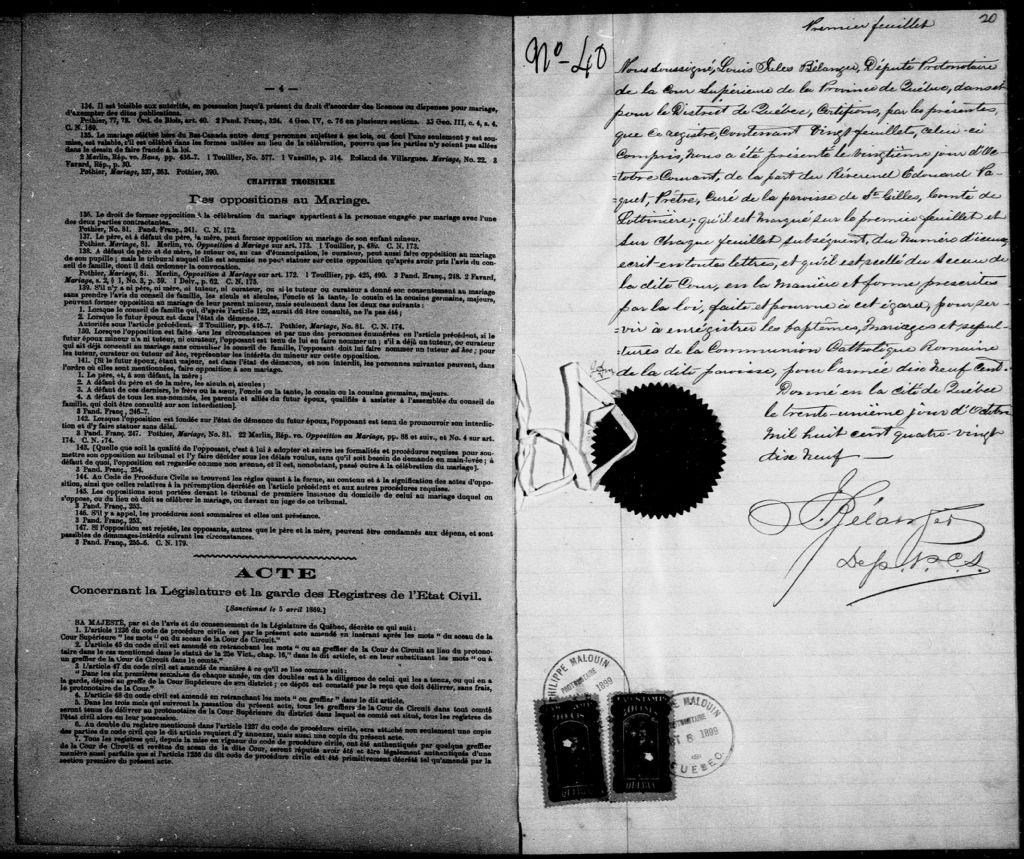 — 4 —
134. Il est loisible aux autorités, en possession jusqu'à présent du droit d'accorder des licences ou dispenses pour mariage,
d'exempter des dites publications.
Pothier, 77, 78. Ord. de Blois, art. 40. 2 Pand. Franç., 324. 4 Geo. IV, c. 76 en plusieurs sections. 35 Geo. III, c. 4, s. 4.
C. N. 169.
135. Le mariage célébré hors du Bas-Canada entre deux personnes sujettes à ses lois, ou dont l'une seulement y est sou-
mise, est valable, s'il est célébré dans les formes usitées au lieu de la célébration, pourvu que les parties n'y soient pas allées
dans le dessein de faire fraude à la loi.
2 Merlin, Rép. vo. Bans, pp. 436-7. 1 Toullier, No. 577. 1 Vazeille, p. 314. Rolland de Villargues. Mariage, No. 22. 3
Favard, Rép., p. 30.
Pothier, Mariage, 327, 363. Pothier, 390.
CHAPITRE TROISIEME
Des oppositions au Mariage.
136. Le droit de former opposition à la célébration du mariage appartient à la personne engagée par mariage avec l'une
des deux parties contractantes.
Pothier, No. 81. Pand. Franç., 241. C. N. 172.
137. Le père, et à défaut du père, la mère, peut former opposition au mariage de son enfant mineur.
Pothier, Mariage, 81. Merlin, vo. Opposition à Mariage sur art. 173. 1 Toullier, p. 489. C. N. 173.
138. A défaut de père et de mère, le tuteur ou, au cas d'émancipation, le curateur, peut aussi faire opposition au mariage
de son pupille; mais le tribunal auquel elle est soumise ne peut statuer sur cette opposition qu'après avoir pris l'avis du con-
seil de famille, dont il doit ordonner la convocation.
Pothier, Mariage, 81. Merlin, Opposition à Mariage sur art. 172. 1 Touillier, pp. 425, 490. 3 Pand. Franç., 248. 2 Favard,
Mariage, s. 2, § 1, No. 3, p. 59. 1 Delv., p. 62. C. N. 175.
139. S'il n'y a ni père, ni mère, ni tuteur, ni curateur, ou si le tuteur ou curateur a donné son consentement au mariage
sans prendre l'avis du conseil de famille, les aïeuls et aïeules, l'oncle et la tante, le cousin et la cousine germains, majeurs,
peuvent former opposition au mariage de leur parent mineur, mais seulement dans les deux cas suivants:
1. Lorsque le conseil de famille qui, d'après l'article 122, aurait dû être consulté, ne l'a pas été;
2. Lorsque le futur époux est dans l'état de démence.
Autorités sous l'article précédent. 2 Touillier, pp. 416-7. Pothier, Mariage, No. 81. C. N. 174.
130. Lorsque l'opposition est faite dans les circonstances et par une des personnes énumérées en l'article précédent, si le
futur époux mineur n'a ni tuteur, ni curateur, l'opposant est tenu de lui en faire nommer un; s'il a déjà un tuteur, ou curateur
qui ait déjà consenti au mariage sans consulter le conseil de famille, l'opposant doit lui faire nommer un tuteur ad hoc; pour
les tuteur, curateur ou tuteur ad hoc, représenter les intérêts du mineur sur cette opposition.
141. [Si le futur époux, étant majeur, est dans l'état de démence, et non interdit, les personnes suivantes peuvent, dans
l'ordre où elles sont mentionnées, faire opposition à son mariage.
1. Le père, et, à son défaut, la mère;
2. A défaut du père et de la mère, les aïeuls et aïeules;
3. A défaut de ces derniers, le frère ou la sœur, l'oncle ou la tante, le cousin ou la cousine germains, majeurs.
4. A défaut de tous les sus-nommés, les parents et alliés du futur époux, qualifiés à assister à l'assemblée du conseil de
famille, qui doit être consulté sur son interdiction].
3 Pand. Franç., 246-7.
142. Lorsque l'opposition est fondée sur l'état de démence du futur époux, l'opposant est tenu de promouvoir son interdic-
tion et d'y faire statuer sans délai.
3 Pand. Franç. 247. Pothier, Mariage, No. 81. 22 Merlin, Rép. vo. Opposition au Mariage, pp. 88 et suiv., et No. 4 sur art.
174. C. N. 174.
143. [Quelle que soit la qualité de l'opposant, c'est à lui à adopter et suivre les formalités et procédures requises pour sou-
mettre son opposition au tribunal et l'y faire décider sous les délais voulus, sans qu'il soit besoin de demande en main-levée; à
défaut de quoi, l'opposition est regardée comme non avenue, et il est, nonobstant, passé outre à la célébration du mariage].
3 Pand. Franç., 254.
144. Au Code de Procédure Civile se trouvent les règles quant à la forme, au contenu et à la signification des actes d'oppo-
sition, ainsi que celles relatives à la péremption décrétée en l'article précédent et aux autres procédures requises.
145. Les oppositions sont portées devant le tribunal de première instance du domicile de celui au mariage duquel on
s'oppose, ou du lieu où doit se célébrer le mariage, ou devant un juge de ce tribunal.
3 Pand. Franç., 253.
146. S'il y a appel, les procédures sont sommaires et elles ont préséance.
3 Pand. Franç., 253.
147. Si l'opposition est rejetée, les opposants, autres que le père et la mère, peuvent être condamnés aux dépens, et sont
passibles de dommages-intérêts suivant les circonstances.
3 Pand. Franç., 255-6. C. N. 179.
ACTE
Concernant la Législature et la garde des Registres de l'Etat Civil.
[Sanctionné le 5 avril 1869.]
SA MAJESTÉ, par et de l'avis et du consentement de la Législature de Québec, décrète ce qui suit:
1. L'article 1236 du code de procédure civile est par le présent acte amendé en insérant après les mots "du sceau de la
Cour Supérieure" les mots "ou du sceau de la Cour de Circuit."
2. L'article 45 du code civil est amendé en retranchant les mots "ou au greffier de la Cour de Circuit au lieu du protono-
taire dans le cas mentionné dans le statut de la 25e Vict., chap. 16," dans le dit article, et en leur substituant les mots "ou à
un greffier de la Cour de Circuit dans le comté."
3. L'article 47 du code civil est amendé de manière à ce qu'il se lise comme suit:
"Dans les six premières semaines de chaque année, un des doubles est à la diligence de celui qui les a tenus, ou qui en a
la garde, déposé au greffe de la Cour Supérieure de son district; ce dépôt est constaté par le reçu que doit délivrer, sans frais,
le protonotaire de la Cour."
4. L'article 48 du code civil est amendé en retranchant les mots "ou greffier" dans le dit article.
5. Dans les trois mois qui suivront la passation du présent acte, tous les greffiers de la Cour de Circuit dans tout comté
seront tenus de délivrer au protonotaire de la Cour Supérieure du district dans lequel ce comté est situé, tous les registres de
l'état civil alors en leur possession.
6. Au double du registre mentionné dans l'article 1237 du code de procédure civile, sera attaché non seulement une copie
des parties du code civil que le dit article requiert d'y annexer, mais aussi une copie du présent acte.
7. Tous les registres qui, depuis la mise en vigueur du code de procédure civile, ont été authentiqués par quelque greffier
de la Cour de Circuit et revêtus du sceau de la dite Cour, seront réputés avoir été et être légalement authentiqués d'une
manière aussi parfaite que si l'article 1236 du dit code de procédure civile eût été primitivement décrété tel qu'amendé par la
section première du présent acte.
20
Premier feuillet
No-40
Nous soussigné, Louis Jules Bélanger, Député Protonotaire
de la Cour Supérieure de la Province de Québec, dans et
pour le District de Québec, Certifions, par les présentes,
que ce registre, Contenant Vingt feuillets, celui-ci
Compris, nous a été présenté le vingtième jour d'Oc-
tobre Courant, de la part du Révérend Edouard Pa-
quet, Prêtre, Curé de la paroisse de St Gilles, Comté de
Lotbinière; qu'il est marqué sur le premier feuillet et
sur chaque feuillet subséquent, du Numéro d'icelui
écrit en toutes lettres, et qu'il est scellé du Sceau de
la dite Cour, en la manière et forme, prescrites
par la loi, faite et pourvue à cet égard, pour ser-
vir à enrégistrer les baptêmes, mariages et sépul-
tures de la Communion Catholique Romaine
de la dite paroisse, pour l'année dix neuf cent.
Donné en la cité de Québec
le trente-unième jour d'Octobre
Mil huit cent quatre-vingt
dix neuf —
J. Bélanger
Dep. P.C.S.
PHILIPPE MALOUIN
PROTONOTAIRE
1899
MALOUIN
PROTONOTAIRE
1899
QUÉBEC